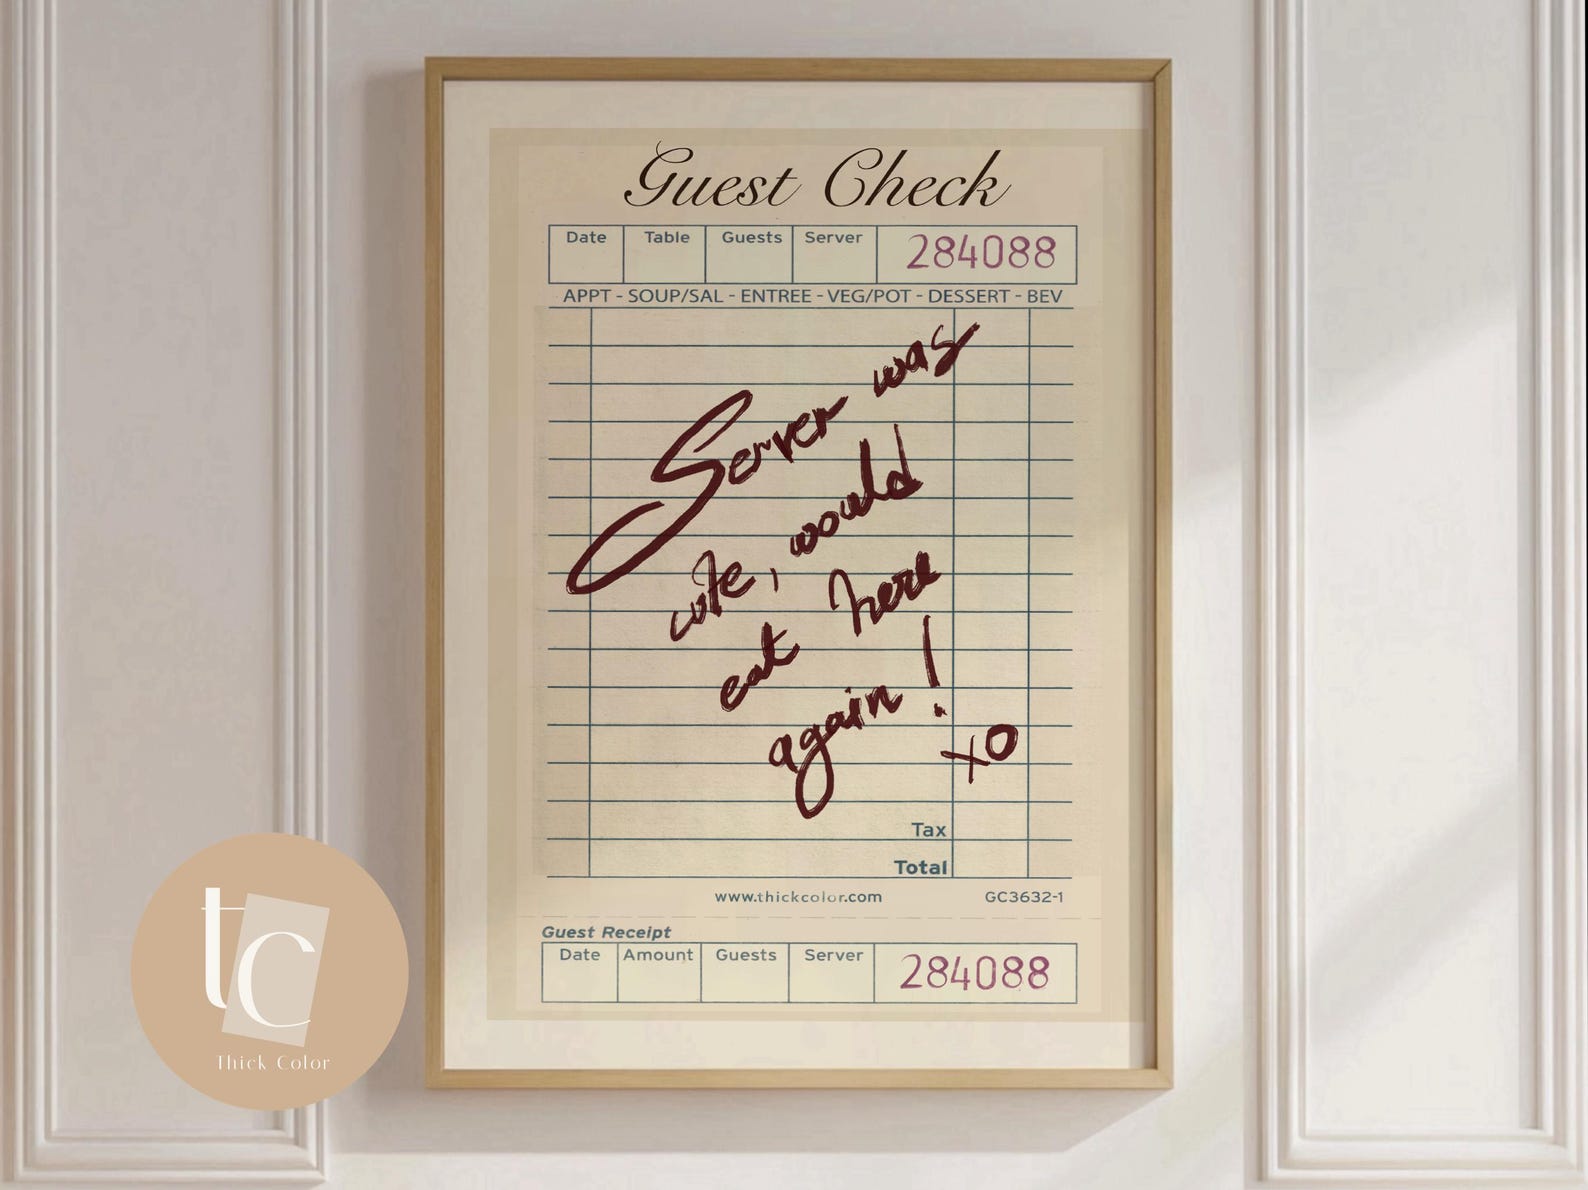 Guest Check
Date Table Guests Server 284088
APPT - SOUP/SAL - ENTREE - VEG/POT - DESSERT - BEV
Server was
cute, would
eat here
again!
xo
Tax
Total
www.thickcolor.com GC3632-1
Guest Receipt
Date Amount Guests Server 284088
tc
Thick Color